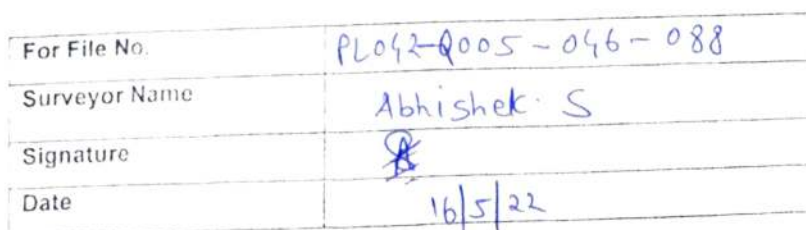 For File No. PL042-Q005-046-088
Surveyor Name Abhishek. S
Signature
Date 16/5/22